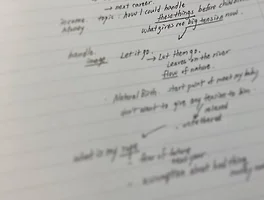 → next career
income topic : how I could handle these things before
Money what gives me big tension now.
handle. Let it go. → Let them go.
image Leaves on the river
flow of nature.
Natural Birth. start point to meet my baby
don't want to give any tension to him
relaxed
untethered
what is my
fear of future
assumption about bad thing